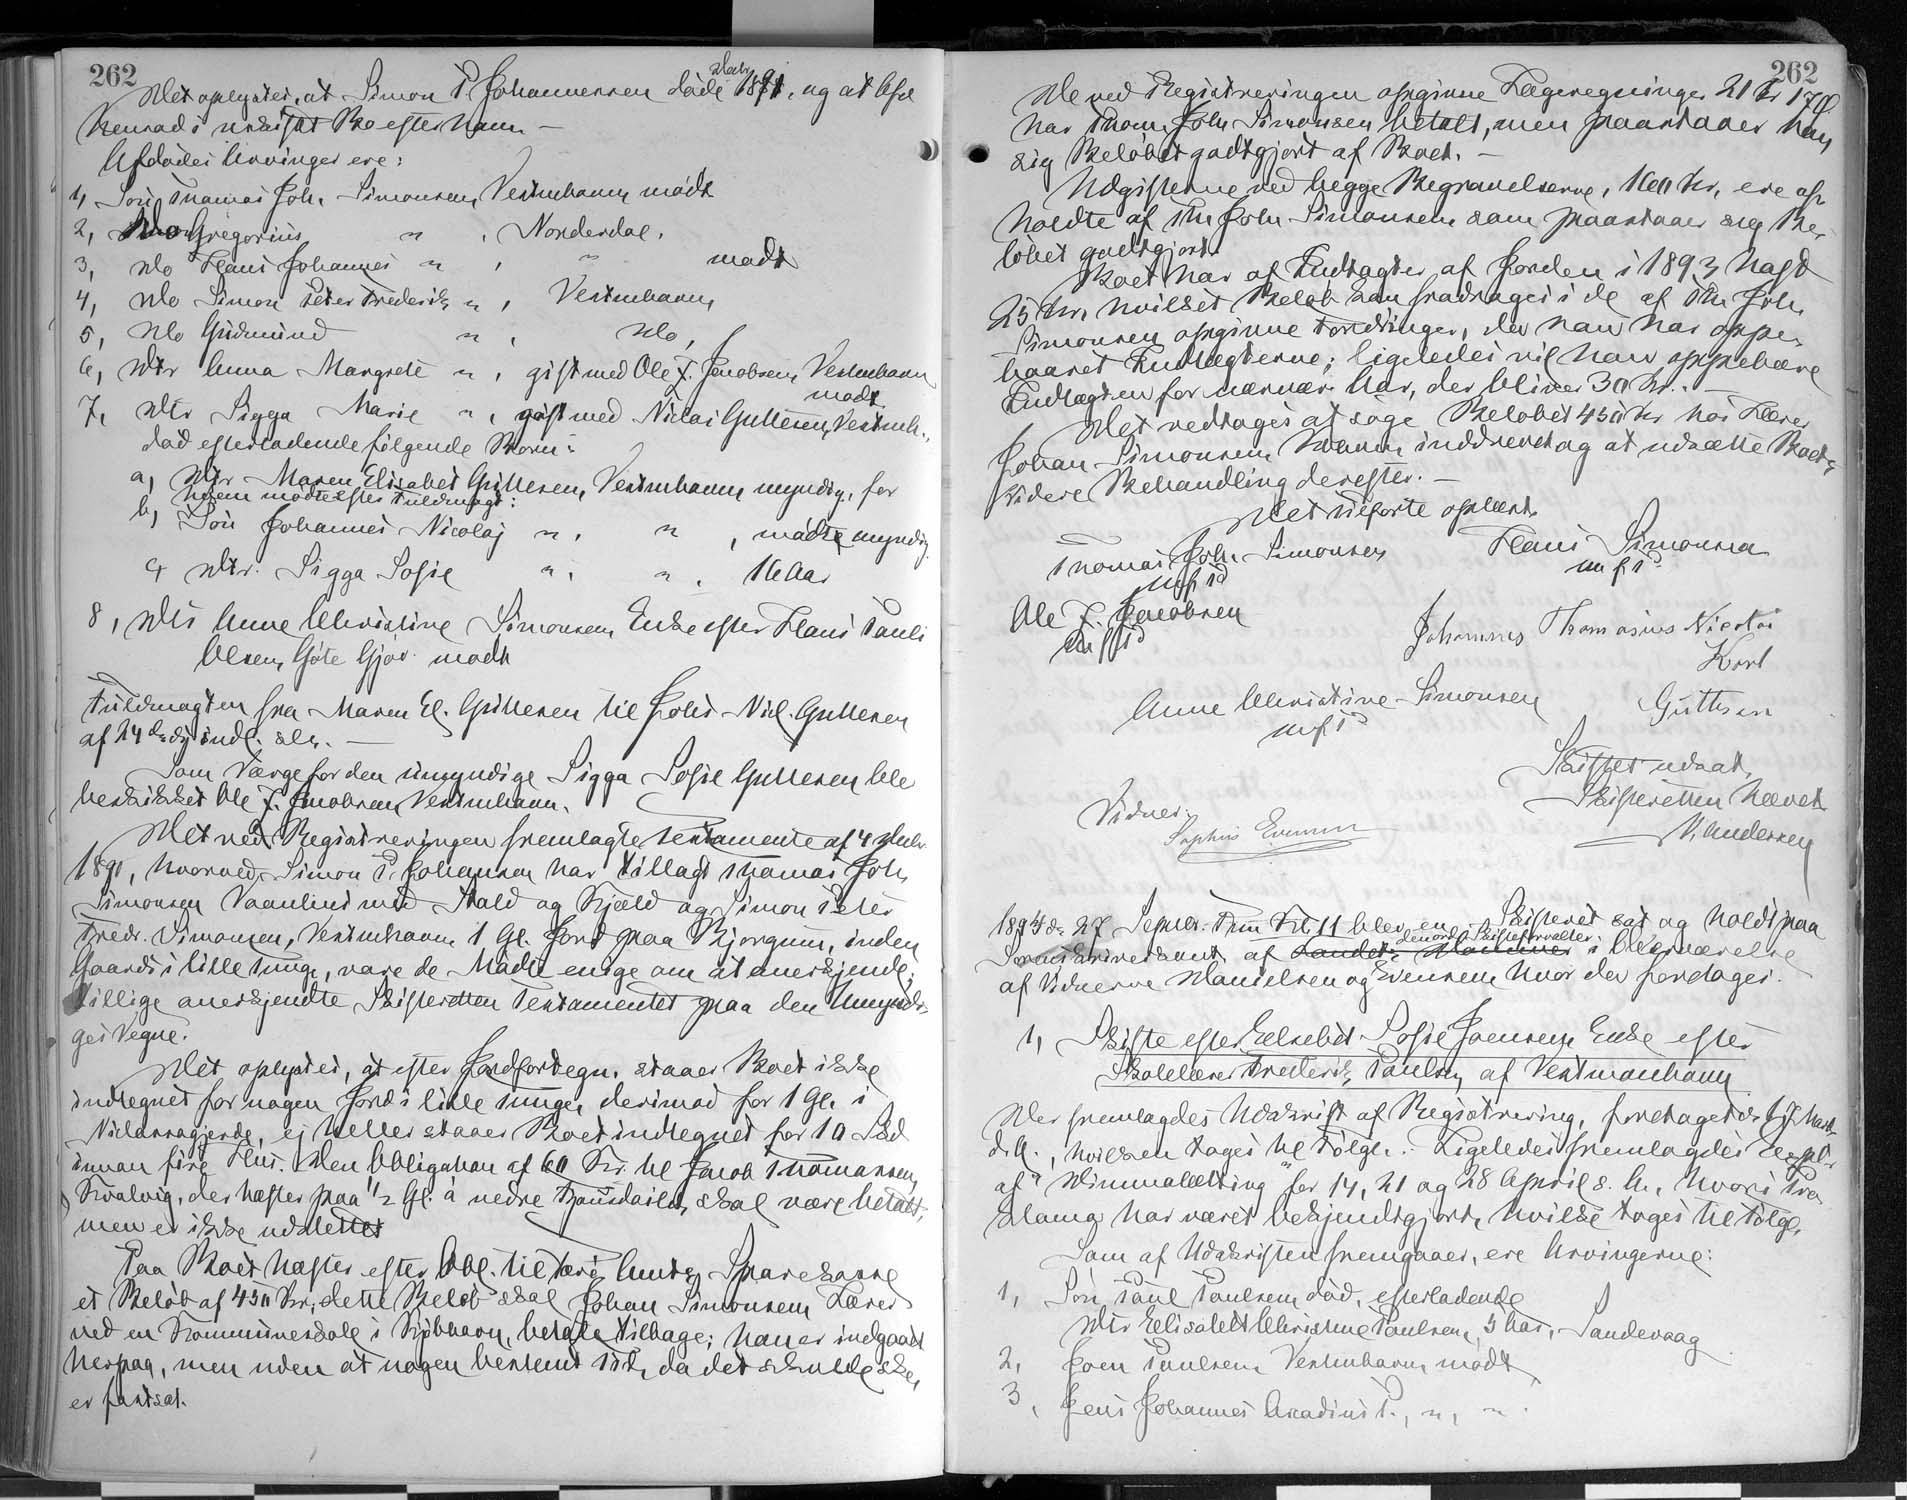 262
Det oplystes, at Simon P. Johannessen døde Decbr 1891, og at Afd
hensad i uskiftet Bo efter ham -
Afdødes Arvinger ere:
1, Søn Thomas Joh. Simonsen, Vestmhavn, mødt
2, Do Gregorius " , Norderdal.
3, Do Hans Johannes " , " mødt
4, Do Simon Peter Frederik " , Vestmhavn,
5, Do Gudmund " , Do,
6, Dtr Anna Margrete " , gift med Ole J. Jacobsen, Vestmhavn
mødt
7, Dtr Sigga Marie " , gift med Niclas Guttesen, Vestmh.,
død efterladende følgende Børn:
a, Dtr Maren Elisabet Guttesen, Vestmhavn myndig, for
hvem mødte efter Fuldmagt:
b, Søn Johannes Nicolaj " , " , mødte, myndig.
c, Dtr. Sigga Sofie " , " , 16 Aar
8, Dtr Anne Christine Simonsen, Enke efter Hans Pauli
Olsen, Gøte Gjov. mødt
Fuldmagten fra Maren El. Guttesen til Johs. Nicl. Guttesen
af 24 ds indl. slr. —
Som Værge for den umyndige Sigga Sofie Guttesen ble
beskikket Ole J. Jacobsen, Vestmhavn.
Det ved Registreringen fremlagte Testamente af 4 Decbr.
1890, hvorved Simon P. Johansen har tillagt Thomas Joh.
Simonsen Vaanhus med Stald og Kjæld og Simon Peter
Fredr. Simonsen, Vestmhavn 1 Gl. Jord paa Bjorgum, inden
Gaards i lille Tunge, vare de Mødte enige om at anerkjende;
tillige anerkjendte Skifteretten Testamentet paa den Umyndi-
ges Vegne.
Det oplystes, at efter Jordfortegn. staaer Boet ikke
indtegnet for nogen Jord i lille Tunge, derimod for 1 Gl. i
Niclassagjerde, ej heller staaer Boet indtegnet for 10 Skd
innan fire Hus. Den Obligation af 60 Kr. til Jacob Thomassen,
Kvalvig, der hæfter paa 1½ Gl. á nedre skal være betalt,
men er ikke udslettet
Paa Boet hæfter efter Obl. til Færø Amts Sparekasse
et Beløb af 450 Kr, dette Beløb skal Johan Simonsen, Lærer
ved en Kommuneskole i Kjøbhavn, betale tilbage; han er indgaaet
herpaa, men uden at nogen bestemt Tid, da det skulde ske,
er fastsat.
262
De ved Registreringen opgivne Lægeregninger 21 Kr 17 Ø
har Thom. Joh. Simonsen betalt, men paastaaer han
sig Beløbet godtgjort af Boet. —
Udgifterne ved begge Begravelserne, 160 Kr, ere af-
holdte af Th. Joh. Simonsen, som paastaaer sig Be-
løbet godtgjort.
Boet har af Indtægter af Jorden i 1893 havt
25 Kr, hvilket Beløb kan fradrages i de af Th. Joh.
Simonsen opgivne Fordringer, da han har oppe-
baaret Indtægterne; ligeledes vil han oppebære
Indtægten for nærvær. Aar, der bliver 30 Kr. —
Det vedtoges at søge Beløbet 450 Kr hos Lærer
Johan Simonsen, Havn, inddrevet og at udsætte Boets
videre Behandling derefter. —
Det tilførte oplæst.
Thomas Joh. Simonsen Hans Simonsen
m f P m f P
Ole J. Jacobsen
m f P
Johannes Thomasius Nicolai
Karl
Anne Christine Simonsen Guttesen
m f P
Skiftet udsat,
Skifteretten hævet
Vidner: V. Andersen
Sophus Evensen
1894 d. 27 Septbr. Fm Kl. 11 blev en Skifteret sat og holdt paa
Sorenskriverkont. af Landets Skifteforvalter i Overværelse
af Vidnerne Danielsen og Evensen, hvor da foretages:
1, Skifte efter Elsebet Sofie Joensen Enke efter
Skolelærer Frederik Paulsen af Vestmanhavn
Der fremlagdes Udskrift af Registrering, foretaget d. 17 Marts
d. A., hvilken tages til Følge. Ligeledes fremlagdes Expl.
af "Dimmalætting" for 14, 21 og 28 April s. A., hvori Pro-
klama har været bekjendtgjort, hvilke toges til Følge.
Som af Udskriften fremgaaer, ere Arvingerne:
1, Søn Paul Paulsen, død, efterladende
Dtr Elisabeth Christine Paulsen, 5 Aar, Sandevaag
2, Joen Paulsen, Vestmhavn, mødt
3, Jens Johannes Acadius P., " , "